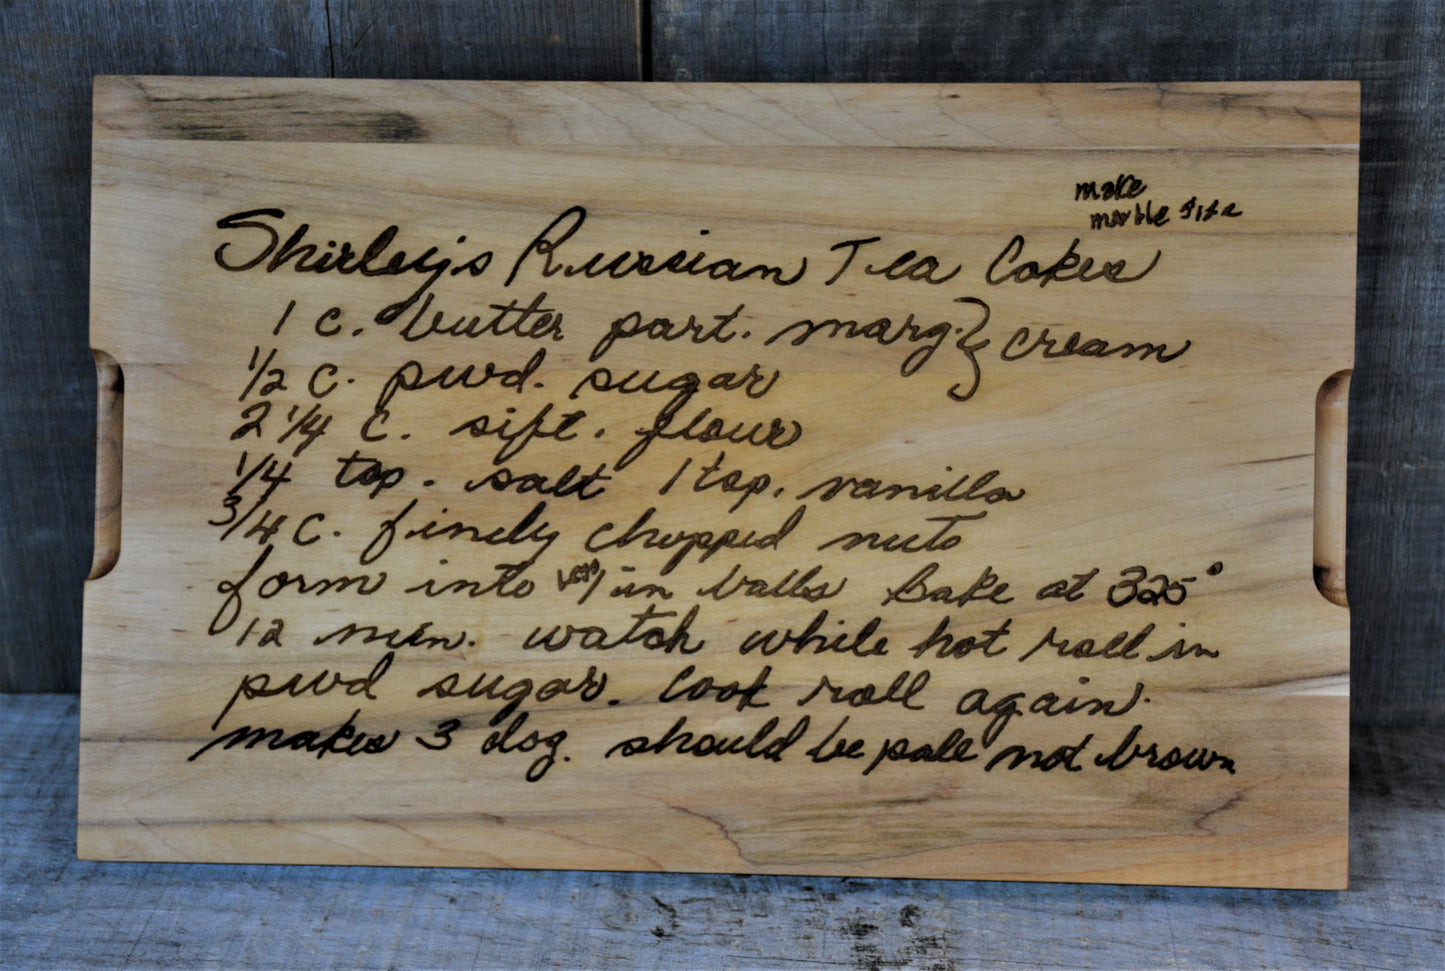 make
marble size
Shirley's Russian Tea Cakes
1 c. butter part. marg. } cream
1/2 c. pwd. sugar
2 1/4 c. sift. flour
1/4 tsp. salt 1 tsp. vanilla
3/4 c. finely chopped nuts
form into 1 in balls Bake at 325°
12 min. watch while hot roll in
pwd sugar. Cool roll again.
makes 3 doz. should be pale not brown